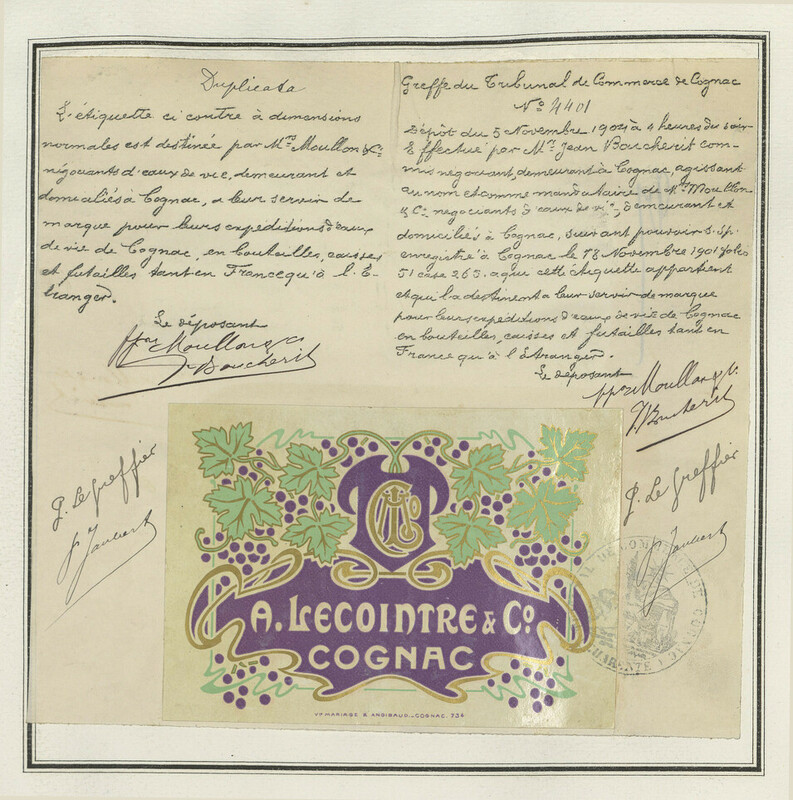 Duplicata
L'étiquette ci contre à dimensions
normales est destinée par Mrs Moullon & Cie
négociants d'eaux de vie, demeurant et
domiciliés à Cognac, à leur servir de
marque pour leurs expéditions d'eaux
de vie de Cognac, en bouteilles, caisses
et futailles tant en France qu'à l'E-
tranger.
Le déposant
ppon Moullon & Co
J Boucherit
G. Le Greffier
Jaubert
Greffe du Tribunal de Commerce de Cognac
No 4401
Dépôt du 5 Novembre 1904 à 4 heures du soir
Effectué par Mr Jean Boucherit com-
mis negociant, demeurant à Cognac, agissant
au nom et comme mandataire de Mrs Moullon
& Co négociants d'eaux de vie, demeurant et
domiciliés à Cognac, suivant pouvoir s.sp.
enregistré à Cognac le 18 Novembre 1901 folio
51 case 265. a qui cette étiquette appartient
et qui la destinent a leur servir de marque
pour leurs expéditions d'eaux de vie de Cognac
en bouteilles, caisses et futailles tant en
France qu'à l'Etranger.
Le déposant
ppon Moullon & Co
J Boucherit
G. Le Greffier
Jaubert
A. LECOINTRE & Co
COGNAC
Vve MARIAGE & ANDIBAUD_COGNAC. 734
DE COMMERCE DE COGNAC
CHARENTE